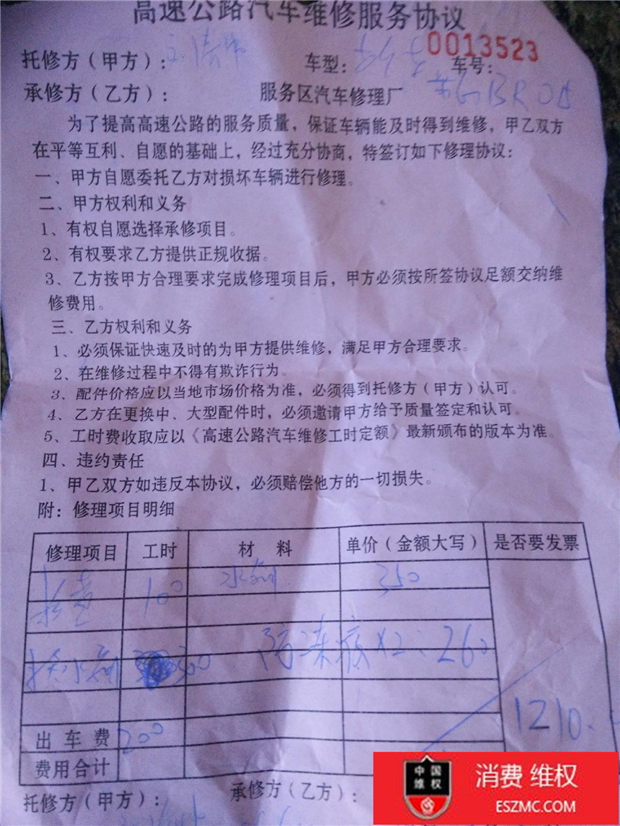 高速公路汽车维修服务协议
0013523
托修方（甲方）： 车型： 车号：
承修方（乙方）： 服务区汽车修理厂
为了提高高速公路的服务质量，保证车辆能及时得到维修，甲乙双方
在平等互利、自愿的基础上，经过充分协商，特签订如下修理协议：
一、甲方自愿委托乙方对损坏车辆进行修理。
二、甲方权利和义务
1、有权自愿选择承修项目。
2、有权要求乙方提供正规收据。
3、乙方按甲方合理要求完成修理项目后，甲方必须按所签协议足额交纳维
修费用。
三、乙方权利和义务
1、必须保证快速及时的为甲方提供维修，满足甲方合理要求。
2、在维修过程中不得有欺诈行为。
3、配件价格应以当地市场价格为准，必须得到托修方（甲方）认可。
4、乙方在更换中、大型配件时，必须邀请甲方给予质量签定和认可。
5、工时费收取应以《高速公路汽车维修工时定额》最新颁布的版本为准。
四、违约责任
1、甲乙双方如违反本协议，必须赔偿他方的一切损失。
附：修理项目明细
修理项目 工时 材 料 单价（金额大写） 是否要发票
检查 100 350
300 防冻液X2：260
1210
出 车 费 200
费用合计
托修方（甲方）： 承修方（乙方）：
中国
维权
消费 维权
ESZMC.COM